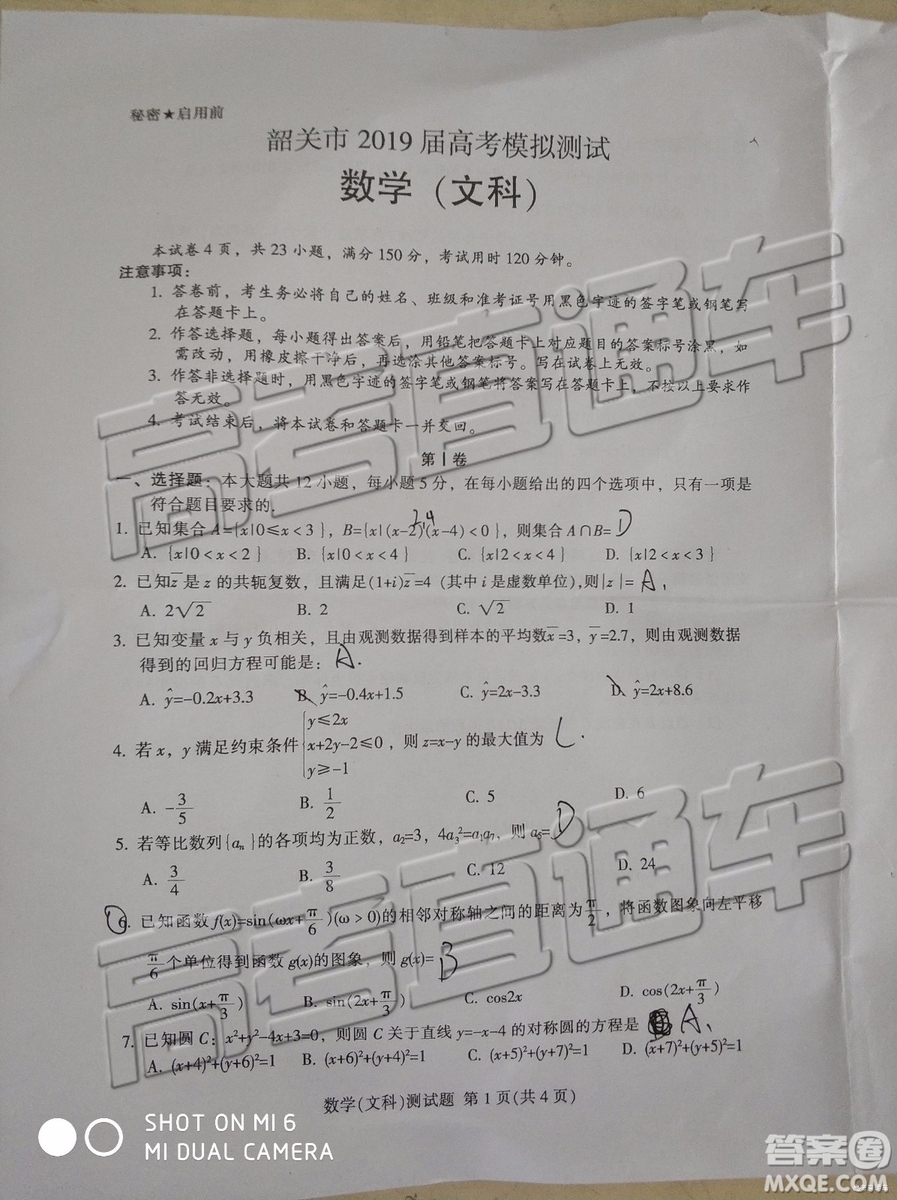 秘密★启用前
韶关市 2019 届高考模拟测试
数学（文科）
本试卷 4 页，共 23 小题，满分 150 分，考试用时 120 分钟。
注意事项：
1. 答卷前，考生务必将自己的姓名、班级和准考证号用黑色字迹的签字笔或钢笔写
在答题卡上。
2. 作答选择题，每小题得出答案后，用铅笔把答题卡上对应题目的答案标号涂黑，如
需改动，用橡皮擦干净后，再选涂其他答案标号。写在试卷上无效。
3. 作答非选择题时，用黑色字迹的签字笔或钢笔将答案写在答题卡上，不按以上要求作
答无效。
4. 考试结束后，将本试卷和答题卡一并交回。
第Ⅰ卷
一、选择题：本大题共 12 小题，每小题 5 分，在每小题给出的四个选项中，只有一项是
符合题目要求的.
2,4
1. 已知集合 A={x|0≤x<3}，B={x|(x-2)(x-4)<0}，则集合 A∩B= D
A. {x|0<x<2} B. {x|0<x<4} C. {x|2<x<4} D. {x|2<x<3}
2. 已知z̄是 z 的共轭复数，且满足(1+i)z̄=4 (其中 i 是虚数单位),则|z|= A.
A. 2√2 B. 2 C. √2 D. 1
3. 已知变量 x 与 y 负相关，且由观测数据得到样本的平均数x̄=3，ȳ=2.7，则由观测数据
得到的回归方程可能是： A.
A. ŷ=-0.2x+3.3 B. ŷ=-0.4x+1.5 C. ŷ=2x-3.3 D. ŷ=2x+8.6
4. 若 x，y 满足约束条件{y≤2x x+2y-2≤0 y≥-1，则 z=x-y 的最大值为 C.
A. -3/5 B. 1/2 C. 5 D. 6
5. 若等比数列{aₙ}的各项均为正数，a₂=3，4a₃²=a₁a₇，则 a₅= D
A. 3/4 B. 3/8 C. 12 D. 24
6. 已知函数 f(x)=sin(ωx+π/6)(ω>0)的相邻对称轴之间的距离为π/2，将函数图象向左平移
π/6个单位得到函数 g(x)的图象，则 g(x)= B
A. sin(x+π/3) B. sin(2x+π/3) C. cos2x D. cos(2x+π/3)
7. 已知圆 C：x²+y²-4x+3=0，则圆 C 关于直线 y=-x-4 的对称圆的方程是 A.
A. (x+4)²+(y+6)²=1 B. (x+6)²+(y+4)²=1 C. (x+5)²+(y+7)²=1 D. (x+7)²+(y+5)²=1
数学(文科)测试题 第 1 页(共 4 页)
高考直通车
高考直通车
SHOT ON MI 6
MI DUAL CAMERA
答案圈
MXQE.COM